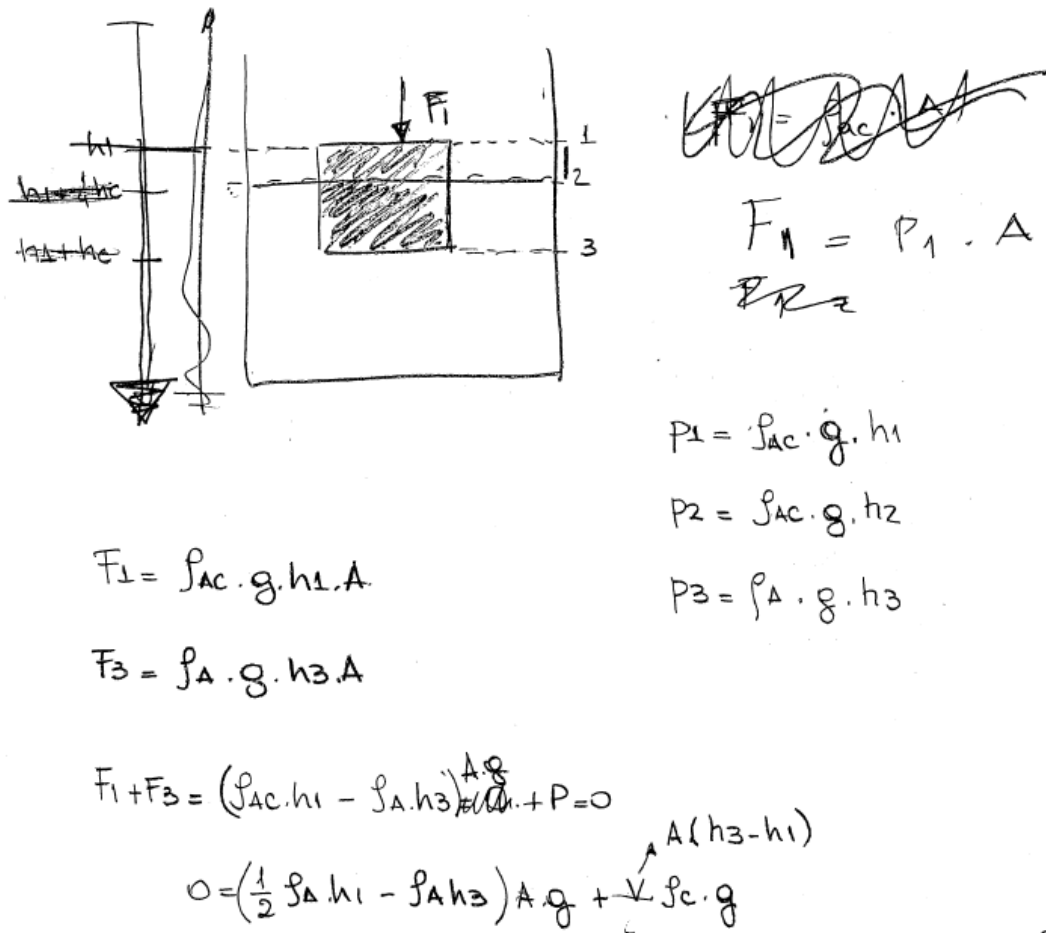 F₁
h1
1
2
h1+hc
3
F₁ = P₁ . A
p1 = ρAC . g . h1
p2 = ρAC . g . h2
p3 = ρA . g . h3
F1 = ρAC . g . h1 . A
F3 = ρA . g . h3 . A
F1 + F3 = (ρAC . h1 - ρA . h3) A.g + P = 0
A(h3-h1)
0 = (1/2 ρA . h1 - ρA h3) A . g + V ρc . g